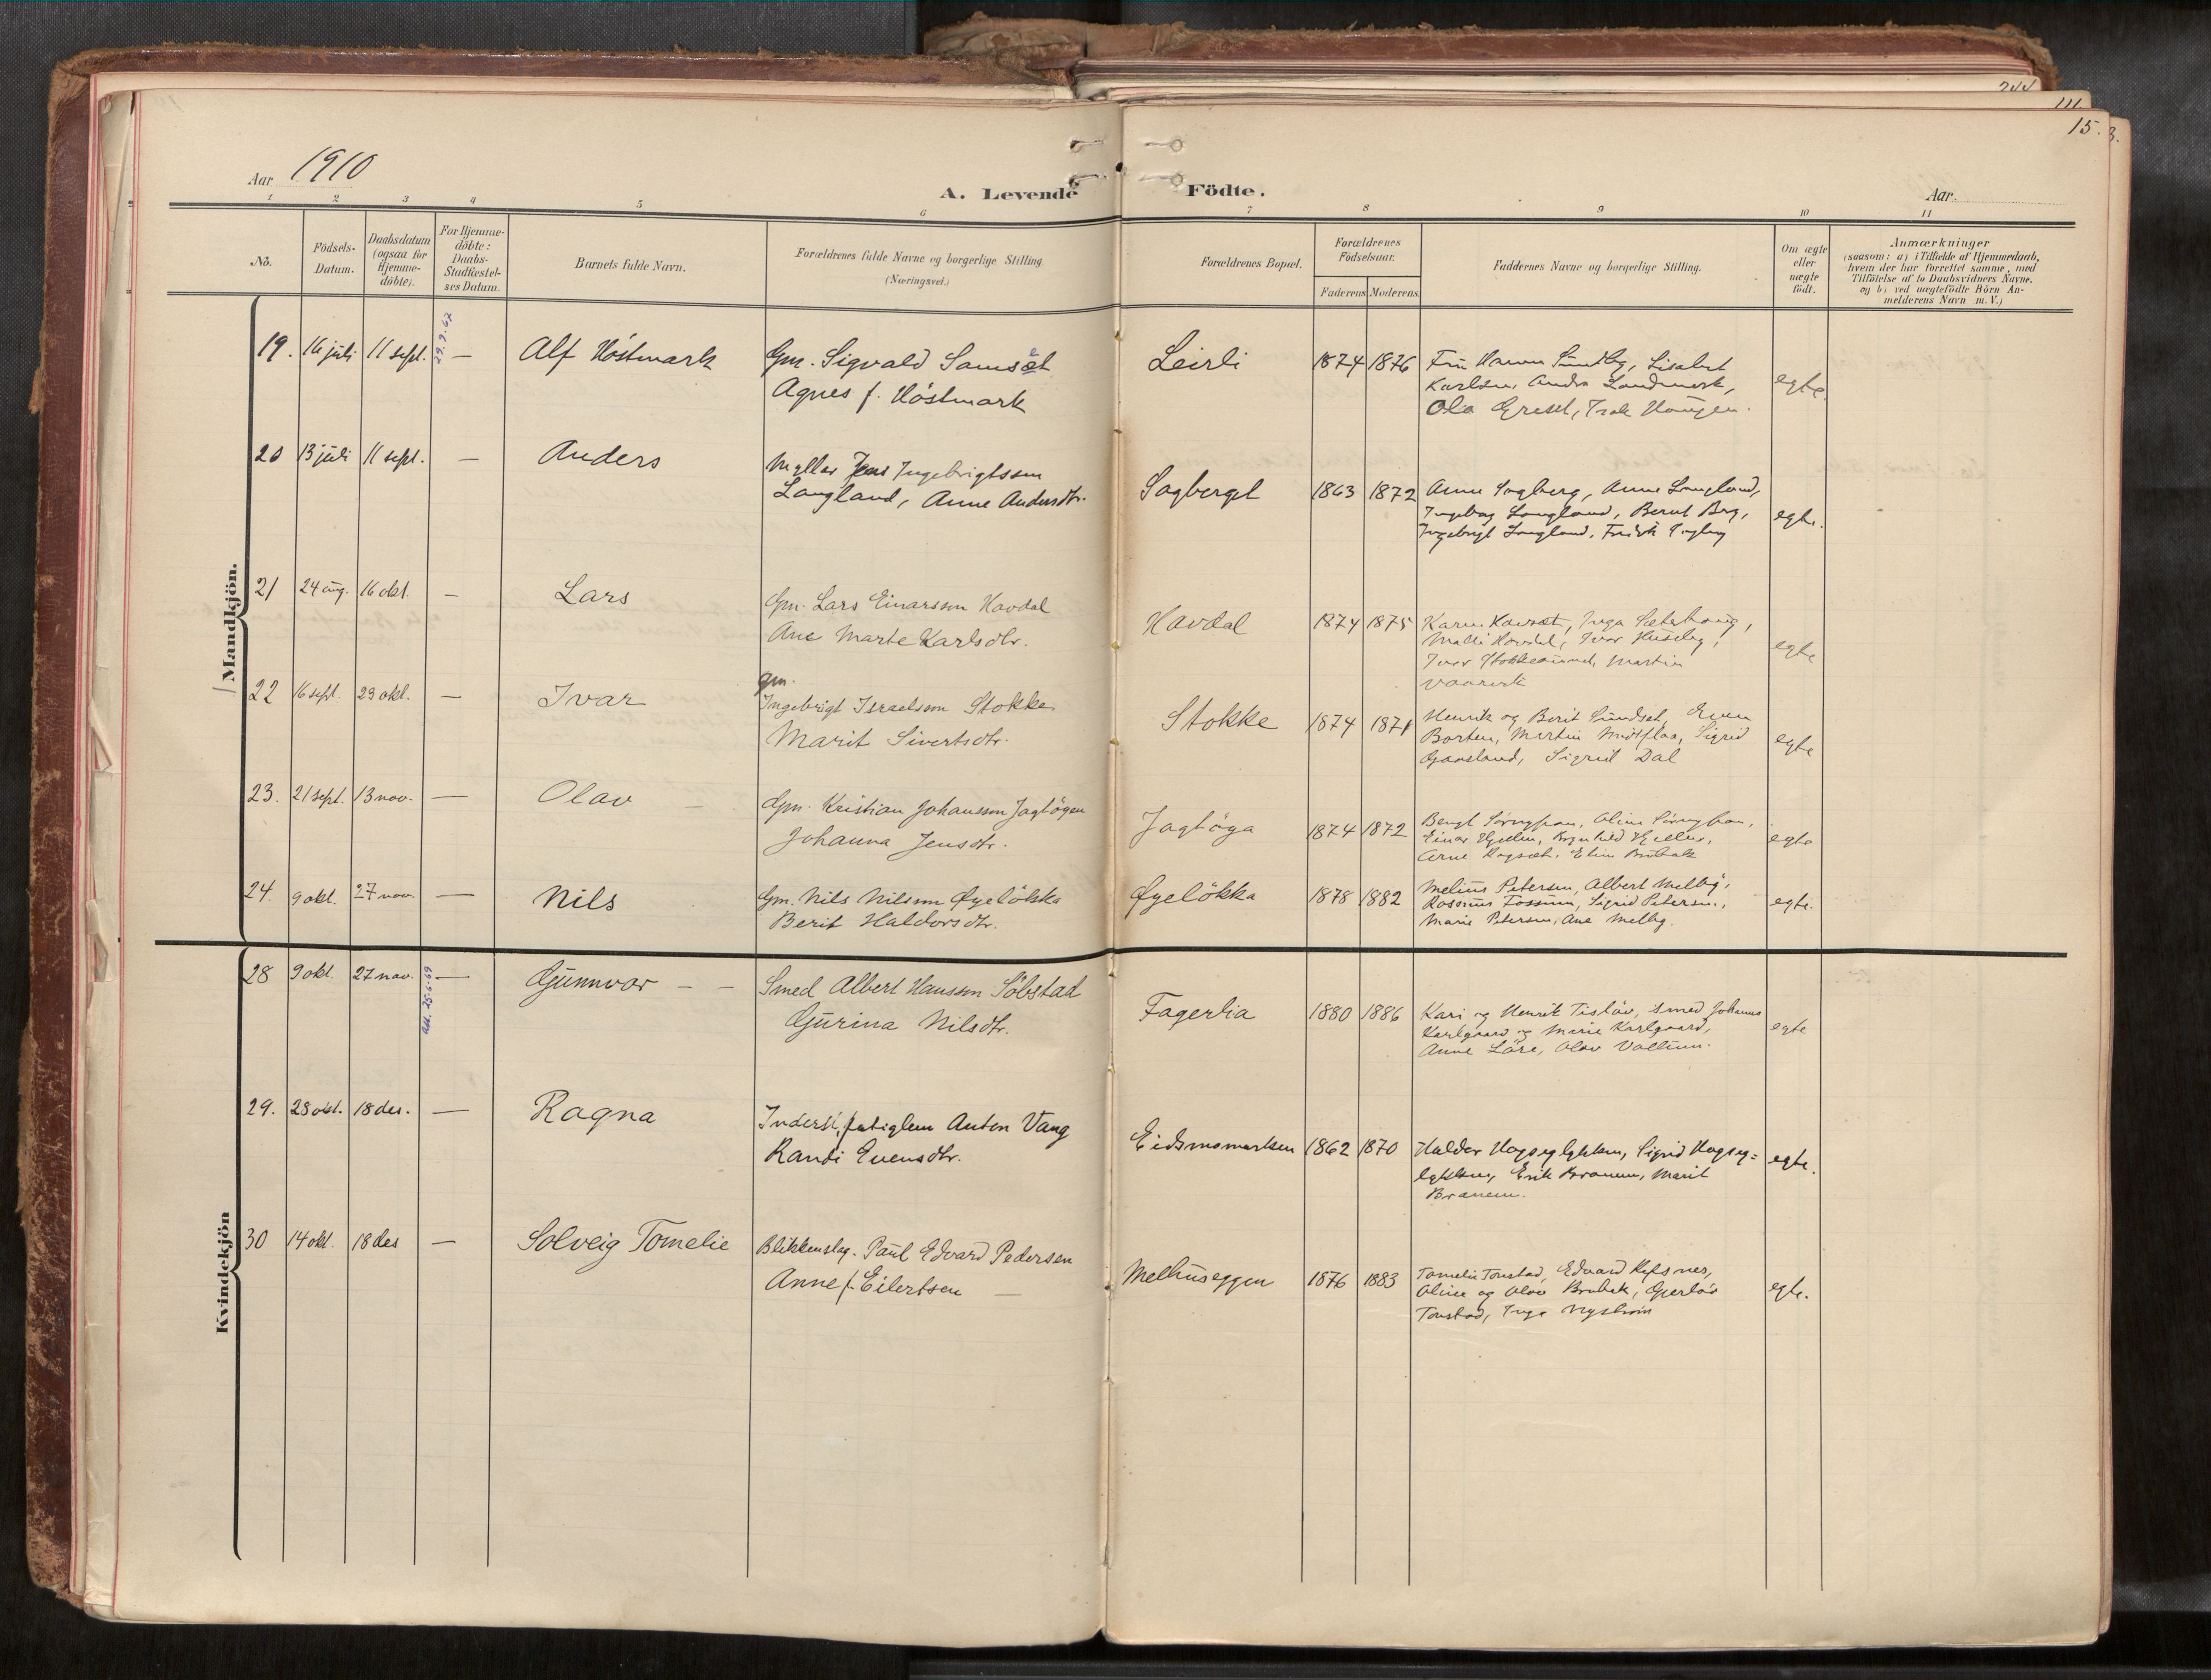 244
111
15.
3.
Aar 1910
A. Levende Födte.
Aar
1 2 3 4 5 6 7 8 9 10 11
No.
Födsels-
Datum.
Daabsdatum
(ogsaa for
Hjemme-
döbte).
For Hjemme-
döbte:
Daabs-
Stadfæstel-
ses Datum.
Barnets fulde Navn.
Forældrenes fulde Navne og borgerlige Stilling
(Næringsvei.)
Forældrenes Bopæl.
Forældrenes
Födselsaar.
Faderens Moderens
Faddernes Navne og borgerlige Stilling.
Om ægte
eller
uægte
födt.
Anmærkninger
(saasom: a) i Tilfælde af Hjemmedaab,
hvem der har forrettet samme, med
Tilföielse af to Daabsvidners Navne.
og b) ved uægtefödte Börn An-
melderens Navn m. V.)
Mandkjön.
19. 16 juli 11 sept. 29.9.67 — Alf Höstmark
Gm. Sigvald Samsæt
Agnes f. Höstmark
Leirli 1874 1876
Fru Hanna Sundby, Lisabet
Karlsen, Andr. Landmark,
Ola Greset, Haugen.
egte.
20 13 juli 11 sept. — Anders
Møller Jens Ingebrigtssen
Langland, Anne Andersdtr.
Sagberget 1863 1872
Anne Sagberg, Anne Langland,
Ingebog Langland, Bernt Berg,
Ingebrigt Langland, Fredrik
egte.
21 24 aug. 16 okt. — Lars
Gm. Lars Einarsson Havdal
Ane Marte Karlsdtr.
Havdal 1874 1875
Karen, Inga Sæterhaug,
Malli Havdal, Ivar Huseby,
Ivar, Martin
egte
22 16 sept. 23 okt. — Ivar
gm.
Ingebrigt Israelsen Stokke
Marit Sivertsdtr.
Stokke 1874 1871
Henrik og Berit Sundset, Even
Borten, Martin, Sigrid
Gaasland, Sigrid Dal
egte
23. 21 sept. 13 nov. — Olav —
Gm. Kristian Johansson Jagtöyen
Johanna Jensdtr.
Jagtöya 1874 1872
Bengt Sörnypan, Oline Sörnypan,
Einar Hjellen, Ragnhild Hjellen,
Arne, Elin Brubakk
egte
24. 9 okt. 27 nov. — Nils
Gm. Nils Nilsson Øyelökka
Berit Haldorsdtr.
Øyelökka 1878 1882
Melius Petersen, Albert Melby,
Rasmus Fossum, Sigrid Petersen,
Marie Petersen, Ane Melby.
egte.
Kvindekjön
28 9 okt. 27 nov. 25-6-69 — Gunnvor — —
Smed Albert Hanssen Söbstad
Gurina Nilsdtr.
Fagerlia 1880 1886
Kari og Henrik Tislöv, smed Johannes
Karlgaard og Marie Karlgaard,
Anne Löre, Olav
egte
29. 28 okt. 18 des. — Ragna
Inderst, fatiglem Anton Vang
Randi Evensdtr.
Eidsmomarken 1862 1870
Haldor Hagseglykken, Sigrid Hagseg=
lykken, Erik Branem, Marit
Branem.
egte.
30 14 okt. 18 des — Solveig Tomelie
Blikkenslag. Paul Edvard Pedersen
Anne f. Eilertsen —
Melhuseggen 1876 1883
Tomelie Tonstad, Edvard Refsnes,
Oline og Olav Brubak, Gjerlöv
Tonstad, Inga Nyström
egte.